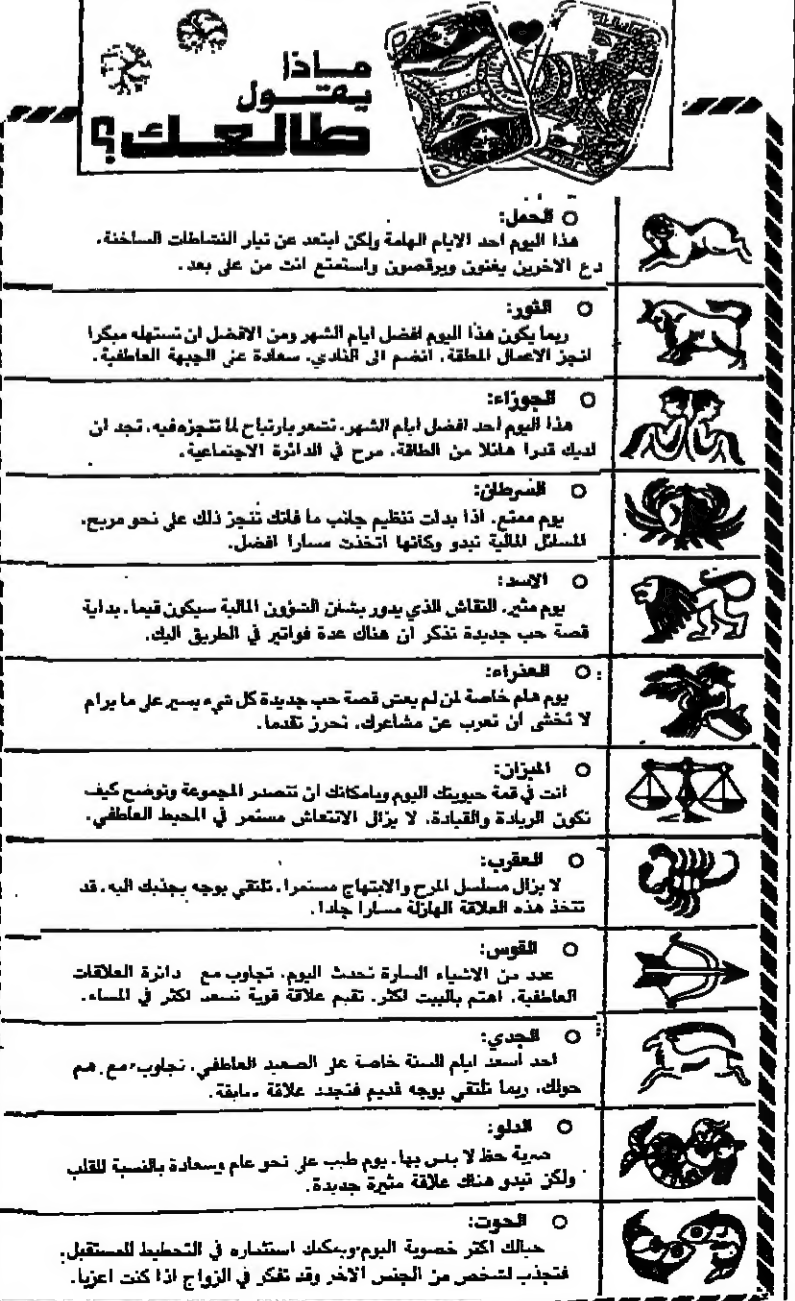 ماذا
يقول
طالعك؟
○ الحمل:
هذا اليوم احد الايام الهامة ولكن ابتعد عن تيار النشاطات الساخنة.
دع الاخرين يغنون ويرقصون واستمتع انت من على بعد.
○ الثور:
ربما يكون هذا اليوم افضل ايام الشهر ومن الافضل ان تستهله مبكرا
انجز الاعمال المعلقة. انضم الى النادي. سعادة على الجبهة العاطفية.
○ الجوزاء:
هذا اليوم احد افضل ايام الشهر. تشعر بارتياح لما تنجزه فيه. تجد ان
لديك قدرا هائلا من الطاقة. مرح في الدائرة الاجتماعية.
○ السرطان:
يوم ممتع. اذا بدات تنظيم جانب ما فاتك تنجز ذلك على نحو مريح.
المسائل المالية تبدو وكانها اتخذت مسارا افضل.
○ الاسد:
يوم مثير. النقاش الذي يدور بشان الشؤون المالية سيكون قيما. بداية
قصة حب جديدة تذكر ان هناك عدة فواتير في الطريق اليك.
○ العذراء:
يوم هام خاصة لمن لم يعش قصة حب جديدة كل شيء يسير على ما يرام
لا تخشى ان تعرب عن مشاعرك. تحرز تقدما.
○ الميزان:
انت في قمة حيويتك اليوم وبامكانك ان تتصدر المجموعة وتوضح كيف
تكون الريادة والقيادة. لا يزال الانتعاش مستمر في المحيط العاطفي.
○ العقرب:
لا يزال مسلسل المرح والابتهاج مستمرا. تلتقي بوجه يجذبك اليه. قد
تتخذ هذه العلاقة الهازلة مسارا جادا.
○ القوس:
عدد من الاشياء السارة تحدث اليوم. تجاوب مع دائرة العلاقات
العاطفية. اهتم بالبيت اكثر. تقيم علاقة قوية تسعد اكثر في المساء.
○ الجدي:
احد أسعد ايام السنة خاصة على الصعيد العاطفي. تجاوب مع هم
حولك. ربما تلتقي بوجه قديم فتجدد علاقة سابقة.
○ الدلو:
ضربة حظ لا باس بها. يوم طيب على نحو عام وسعادة بالنسبة للقلب
ولكن تبدو هناك علاقة مثيرة جديدة.
○ الحوت:
خيالك اكثر خصوبة اليوم ويمكنك استثماره في التخطيط للمستقبل.
فتجذب لشخص من الجنس الاخر وقد تفكر في الزواج اذا كنت اعزبا.